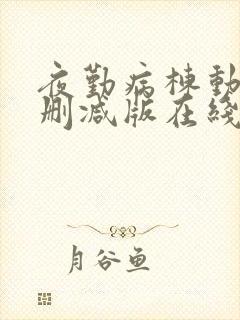 夜勤病棟動
删减版在綫
月谷鱼